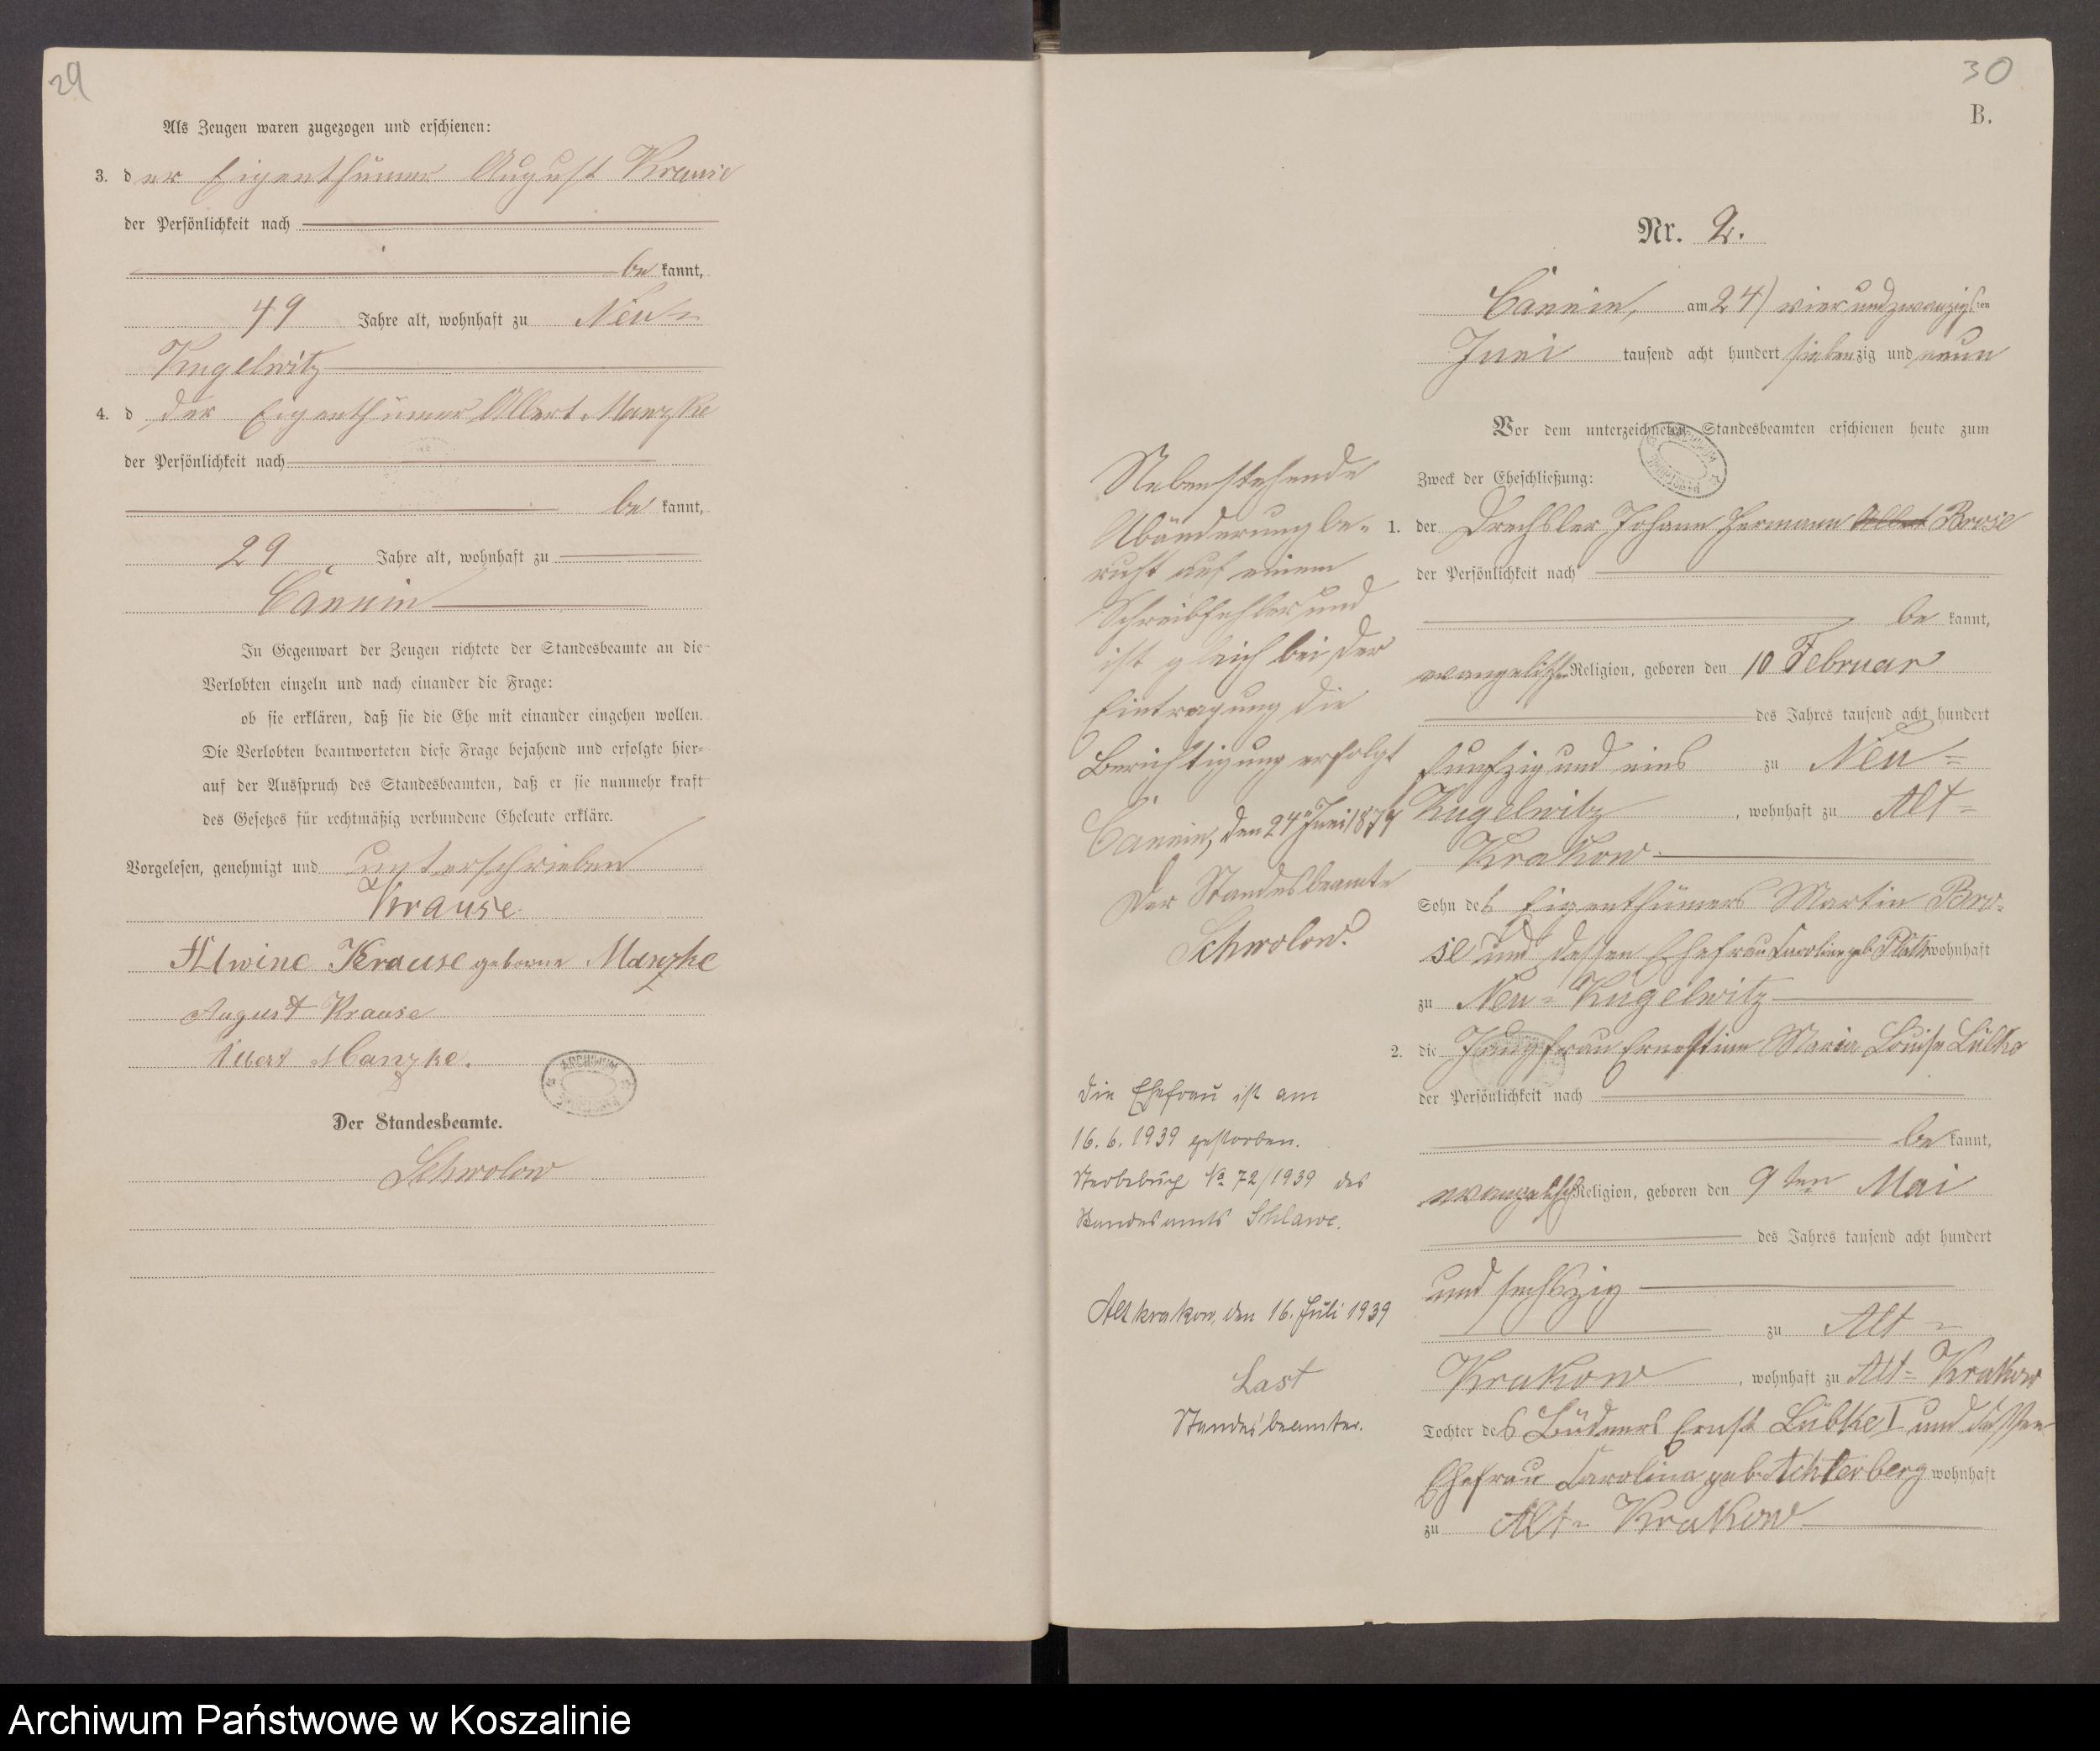 29
Als Zeugen waren zugezogen und erschienen:
3. der Eigenthümer August Krause
der Persönlichkeit nach
be kannt,
49 Jahre alt, wohnhaft zu Neu-
Kugelwitz
4. d der Eigenthümer Albert Manzke
der Persönlichkeit nach
be kannt,
29 Jahre alt, wohnhaft zu
Cannin
In Gegenwart der Zeugen richtete der Standesbeamte an die
Verlobten einzeln und nach einander die Frage:
ob sie erklären, daß sie die Ehe mit einander eingehen wollen.
Die Verlobten beantworteten diese Frage bejahend und erfolgte hier-
auf der Ausspruch des Standesbeamten, daß er sie nunmehr kraft
des Gesetzes für rechtmäßig verbundene Eheleute erkläre.
Vorgelesen, genehmigt und unterschrieben
Krause
Alwine Krause geborne Manzke
August Krause
Albert Manzke.
Der Standesbeamte.
Schwolow
30
B.
Nr. 2.
Cannin, am 24) vierundzwanzigsten
Juni tausend acht hundert siebenzig und neun
Vor dem unterzeichneten Standesbeamten erschienen heute zum
Zweck der Eheschließung:
1. der Drechsler Johann Hermann Albert Brose
der Persönlichkeit nach
be kannt,
evangelischer Religion, geboren den 10 Februar
des Jahres tausend acht hundert
funfzig und eins zu Neu-
Kugelwitz, wohnhaft zu Alt-
Krakow
Sohn des Eigenthümers Martin Bro-
se und dessen Ehefrau Caroline geb. Plath wohnhaft
zu Neu-Kugelwitz
2. die Jungfrau Ernestine Maria Louise Lübke
der Persönlichkeit nach
be kannt,
evangelischer Religion, geboren den 9ten Mai
des Jahres tausend acht hundert
und sechszig
zu Alt-
Krakow, wohnhaft zu Alt-Krakow
Tochter des Büdners Ernst Lübke I und dessen
Ehefrau Carolina geb. Achterberg wohnhaft
zu Alt-Krakow
Nebenstehende
Abänderung be-
ruht auf einem
Schreibfehler und
ist gleich bei der
Eintragung die
Berichtigung erfolgt
Cannin, den 24 Juni 1879
Der Standesbeamte
Schwolow.
Die Ehefrau ist am
16.6.1939 gestorben.
Sterbebuch No 72/1939 des
Standesamts Schlawe.
Altkrakow, den 16. Juli 1939
Last
Standesbeamter.
Archiwum Państwowe w Koszalinie